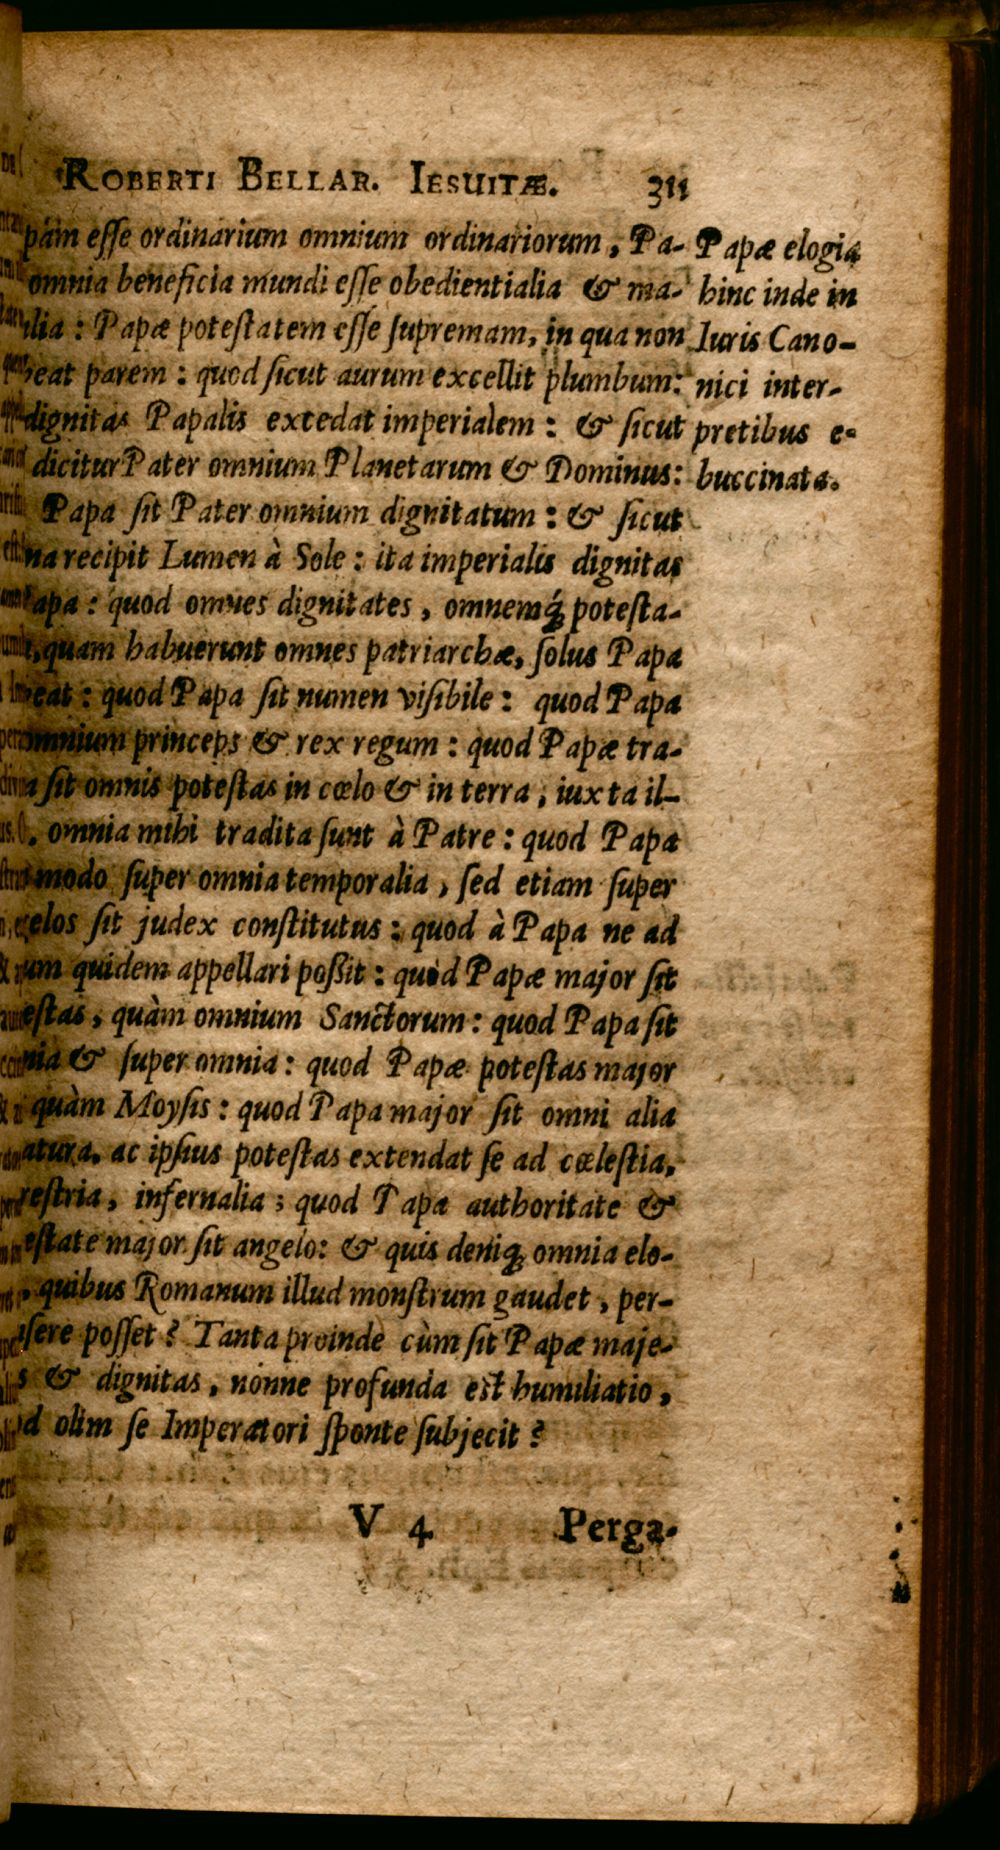 ROBERTI BELLAR. IESUITÆ. 311
pam esse ordinarium omnium ordinariorum, Pa-
omnia beneficia mundi esse obedientialia & ma-
lia: Papæ potestatem esse supremam, in qua non
eat parem: quod sicut aurum excellit plumbum:
dignitas Papalis excedat imperialem: & sicut
dicitur Pater omnium Planetarum & Dominus:
Papa sit Pater omnium dignitatum: & sicut
na recipit Lumen à Sole: ita imperialis dignitas
Papa: quod omnes dignitates, omnemq́; potesta-
, quam habuerunt omnes patriarchæ, solus Papa
eat: quod Papa sit numen visibile: quod Papa
omnium princeps & rex regum: quod Papæ tra-
a sit omnis potestas in cœlo & in terra, iuxta il-
. omnia mihi tradita sunt à Patre: quod Papa
modo super omnia temporalia, sed etiam super
elos sit judex constitutus: quod à Papa ne ad
um quidem appellari possit: quod Papæ major sit
estas, quàm omnium Sanctorum: quod Papa sit
nia & super omnia: quod Papæ potestas major
quàm Moysis: quod Papa major sit omni alia
atura. ac ipsius potestas extendat se ad cœlestia,
restria, infernalia; quod Papa authoritate &
estate major sit angelo: & quis deniq; omnia elo-
, quibus Romanum illud monstrum gaudet, per-
sere posset? Tanta proinde cùm sit Papæ maje-
s & dignitas, nónne profunda est humiliatio,
d olim se Imperatori sponte subjecit?
Papæ elogia
hinc inde in
Iuris Cano-
nici inter-
pretibus e-
buccinata.
V 4 Perga-